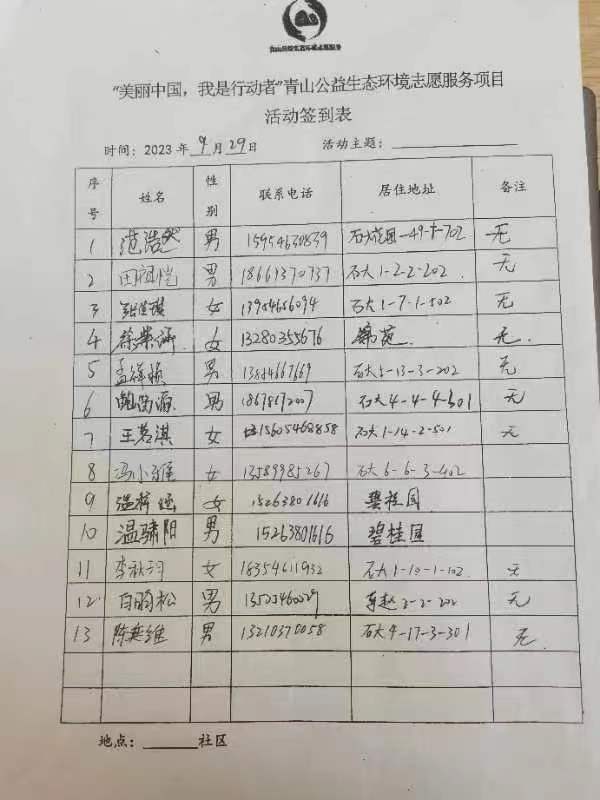 "美丽中国，我是行动者"青山公益生态环境志愿服务项目
活动签到表
时间：2023年9月29日 活动主题：
序号 姓名 性别 联系电话 居住地址 备注
1 范浩然 男 15954630839 石大花园-49-1-702 无
2 田祖恺 男 18661370737 石大1-2-2-202 无
3 女 13954656094 石大1-7-1-502 无
4 徐紫涵 女 13280355676 锦苑 无
5 孟祥 男 石大5-13-3-202 无
6 鲍 源 男 石大4-4-4-501 无
7 王若淇 女 15605468858 石大1-14-2-501 无
8 冯小雅 女 13589985267 石大6-6-3-402
9 温 女 15263801616 碧桂园
10 温骕阳 男 15263801616 碧桂园
11 李秋羽 女 18354611932 石大1-10-1-102 无
12 白昀松 男 东赵2-2-202 无
13 陈奕维 男 13210370058 石大9-17-3-301 无
地点：社区